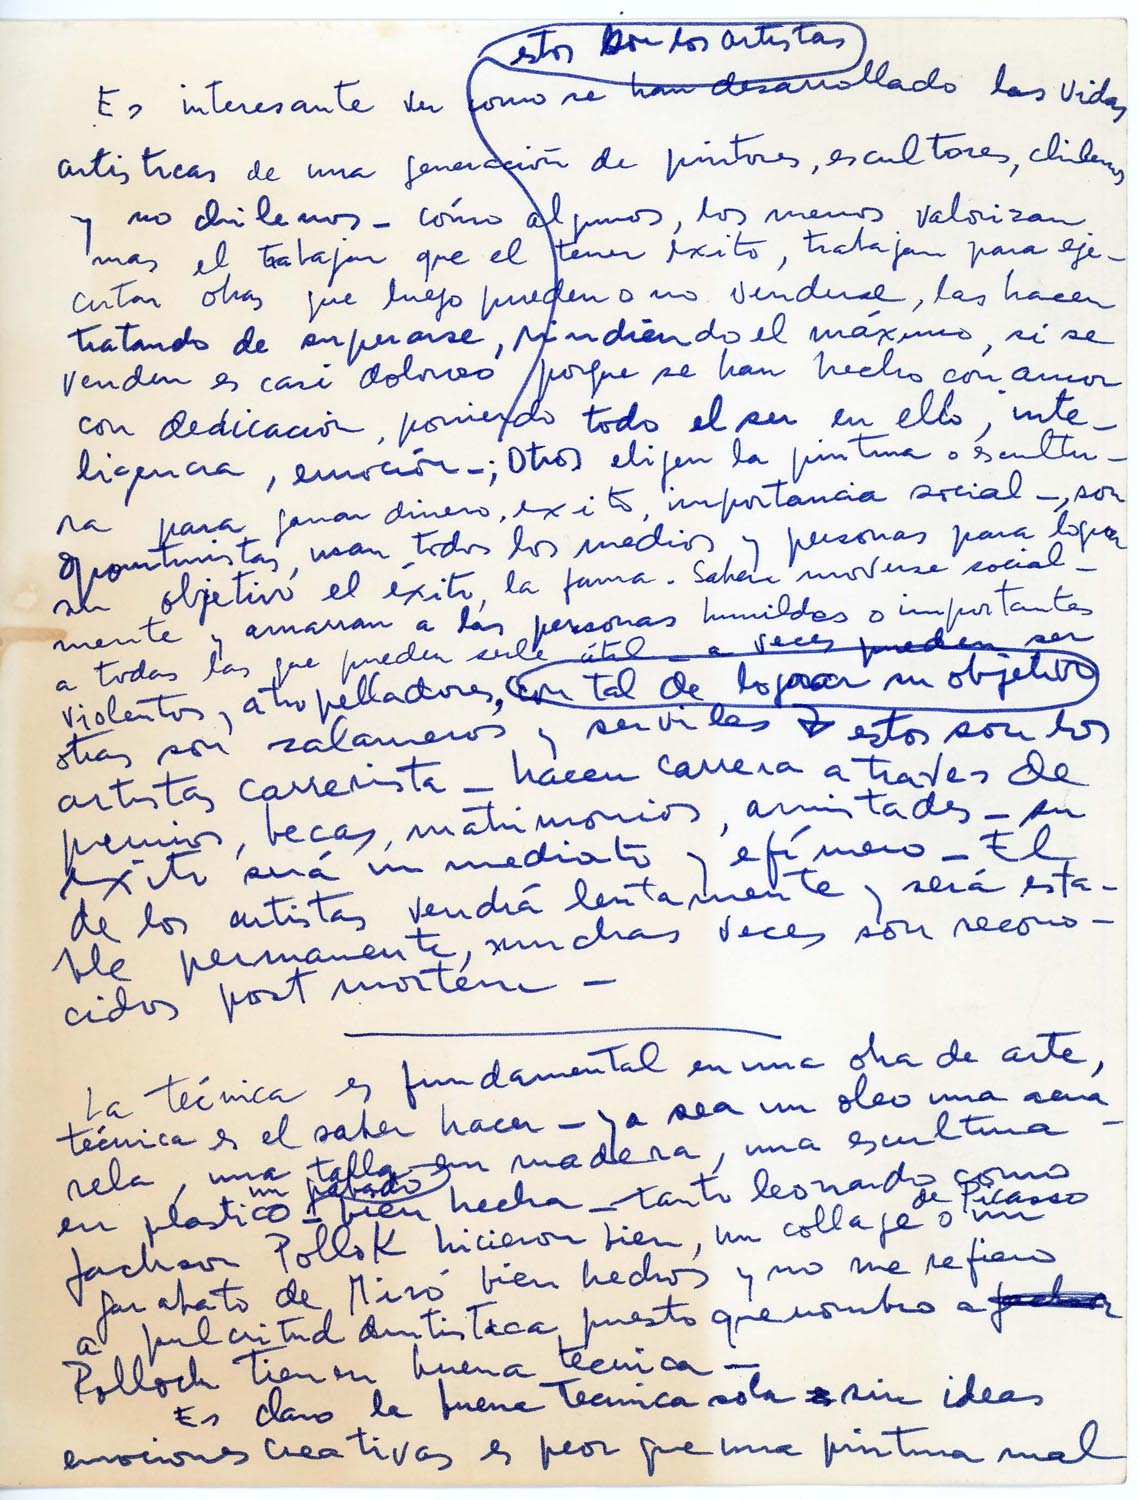 estos son los artistas
Es interesante ver como se han desarrollado las vidas
artisticas de una generación de pintores, escultores, chilenos
y no chilenos - cómo algunos, los menos valorizan
mas el trabajar que el tener éxito, trabajan para eje-
cutar obras que luego pueden o no venderse, las hacen
tratando de superarse, rindiendo el máximo, si se
venden es casi doloroso porque se han hecho con amor
con dedicación, poniendo todo el ser en ello, inte-
ligencia, emoción -; Otros eligen la pintura o escultu-
ra para ganar dinero, exito, importancia social -, son
oportunistas, usan todos los medios y personas para lograr
su objetivo el éxito, la fama. Saben moverse social-
mente y amarran a las personas humildes o importantes
a todas las que pueden serle útil - a veces pueden ser
violentos y atropelladores, con tal de lograr su objetivo
otras son zalameros y serviles y estos son los
artistas carrerista - hacen carrera a traves de
premios, becas, matrimonios, amistades - su
éxito será inmediato y efímero - El
de los artistas vendrá lentamente y será esta-
ble permanente, muchas veces son recono-
cidos post mortém -
La técnica es fundamental en una obra de arte,
técnica es el saber hacer - ya sea un oleo una acua
rela, una talla en madera, una escultura -
en plastico un grabado - bien hecha - tanto leonardo como
Jackson Pollok hicieron bien, un collage de Picasso o un
garabato de Miró bien hechos y no me refiero
a pulcritud dentistica, puesto que nombro a
Pollock tienen buena tecnica -
Es claro la buena tecnica sola sin ideas
emociones creativas es peor que una pintura mal